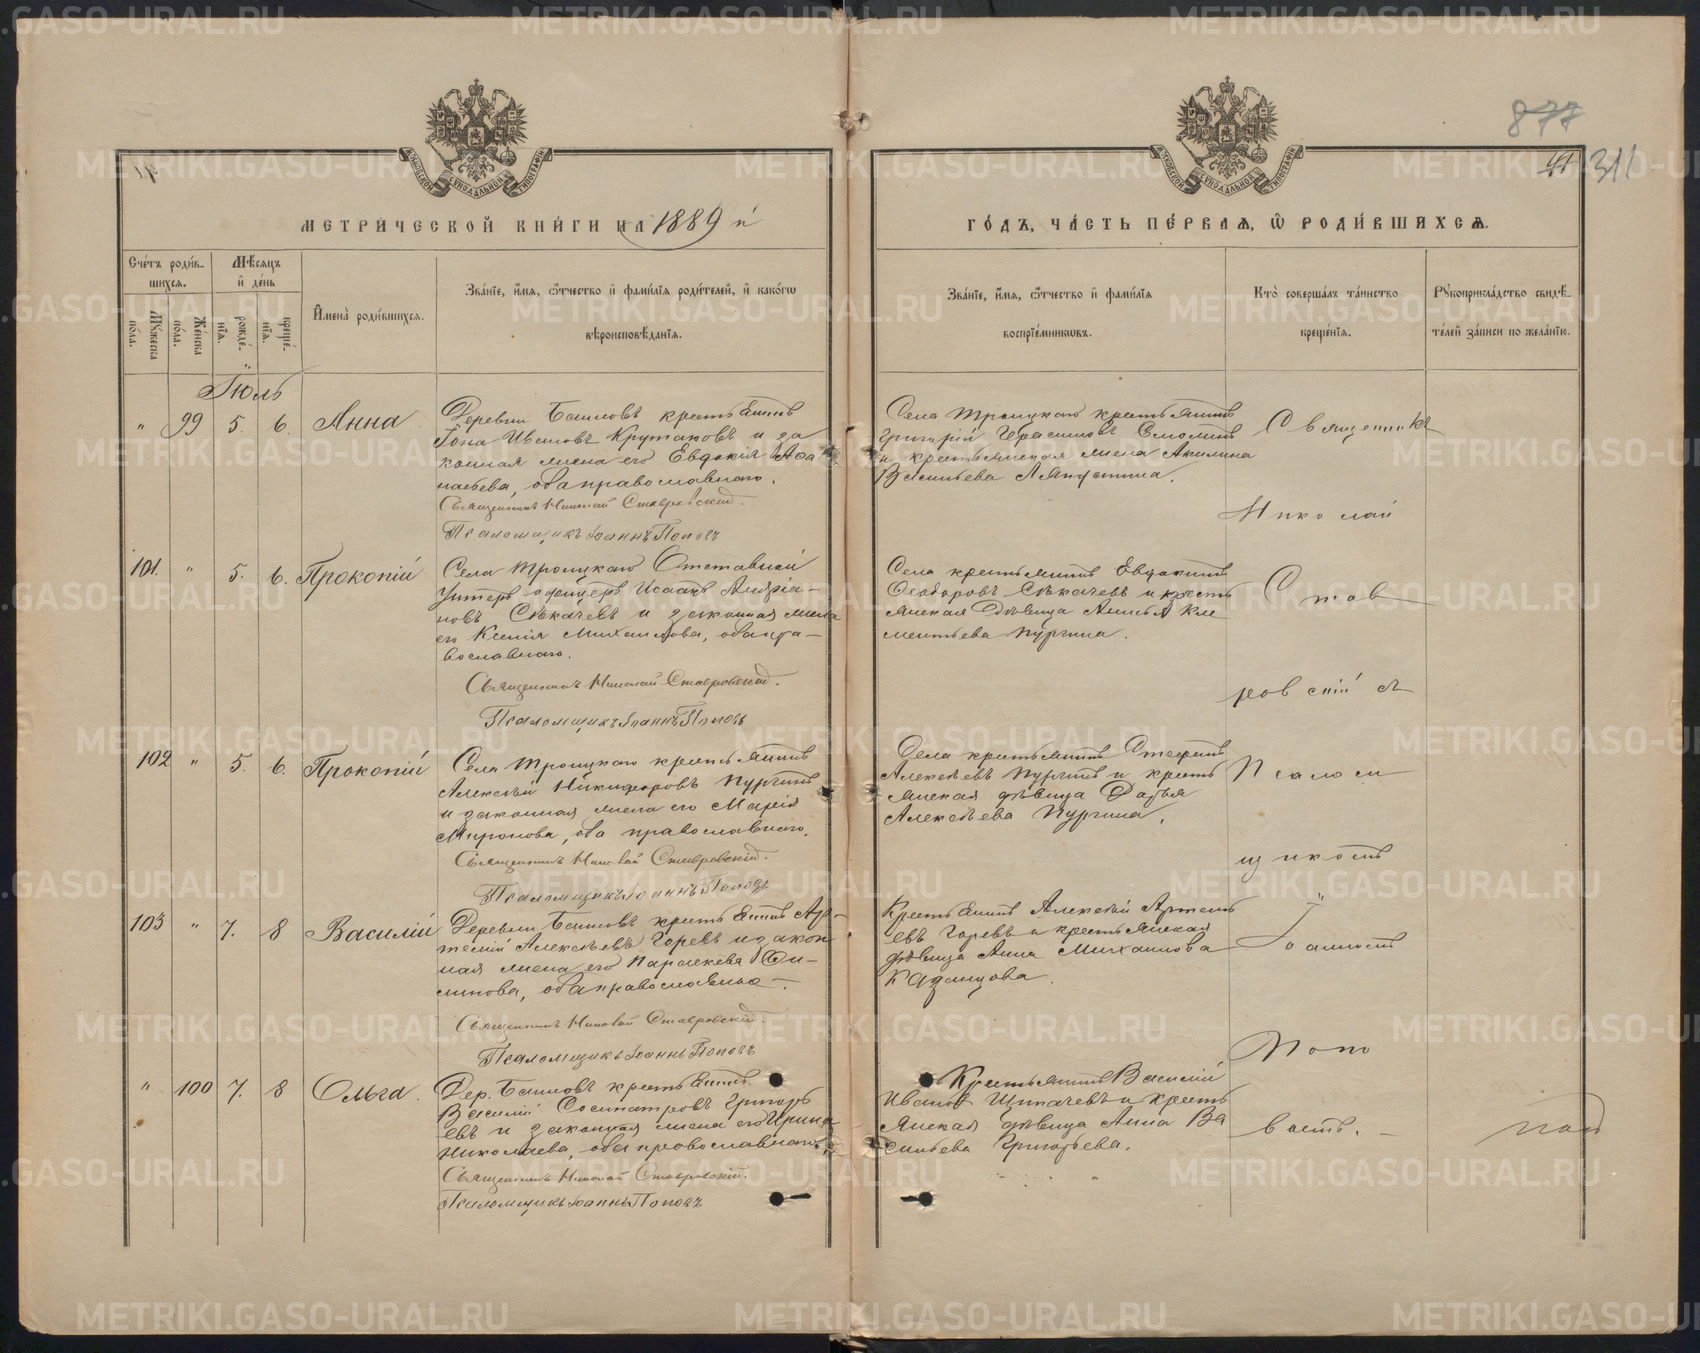 877
41 311
МЕТРИЧЕСКОЙ КНИГИ НА 1889 й
ГОДЪ, ЧАСТЬ ПЕРВАЯ, Ѡ РОДИВШИХСЯ.
Счетъ родив-
шихся.
Мужеска пола.
Женска пола.
Мѣсяцъ и день
рожденія.
крещенія.
Имена родившихся.
Званіе, имя, отчество и фамилія родителей, и какогѡ
вѣроисповѣданія.
Званіе, имя, отчество и фамилія
воспріемникѡвъ.
Кто совершалъ таинство
крещенія.
Рукоприкладство свидѣ-
телей записи по желанію.
Іюль
" 99 5. 6. Анна
Деревни Баиновъ крестьянинъ
Іона Ивановъ Крутаковъ и за
конная жена его Евдокія Аѳа
насьева, оба православнаго.
Священникъ Николай Ставровскій.
Псаломщикъ Іоаннъ Поповъ
Села Троицкаго крестьянинъ
Григорій Герасимовъ Смолинъ
и крестьянская жена Акилина
Васильева
101. " 5. 6. Прокопій
Села Троицкаго Отставной
Унтеръ офицеръ Исаакъ Андріа-
новъ Сѣкачевъ и законная жена
его Ксенія Михаилова, оба пра-
вославнаго.
Священникъ Николай Ставровскій.
Псаломщикъ Іоаннъ Поповъ
Села крестьянинъ Евдокимъ
Ѳедоровъ Сѣкачевъ и кресть
янская дѣвица Анисья Кле
ментьева Пургина.
102 " 5. 6. Прокопій
Села Троицкаго крестьянинъ
Алексѣй Никифоровъ Пургинъ
и законная жена его Марія
Миронова, оба православнаго.
Священникъ Николай Ставровскій.
Псаломщикъ Іоаннъ Поповъ
Села крестьянинъ Стефанъ
Алексѣевъ Пургинъ и кресть
янская дѣвица Дарья
Алексѣева Пургина.
103 " 7. 8 Василій
Деревни Баиновъ крестьянинъ Ар-
темій Алексѣевъ Горевъ и закон
ная жена его Параскева Фи-
липова, оба православные.
Священникъ Николай Ставровскій.
Псаломщикъ Іоаннъ Поповъ
Крестьянинъ Алексѣй Артемь
евъ Горевъ и крестьянская
дѣвица Анна Михаилова
Казанцова.
" 100 7. 8 Ольга.
Дер. Баиновъ крестьянинъ
Василій Сосипатровъ Григорь
евъ и законная жена его Ирина
Николаева, оба православнаго.
Священникъ Николай Ставровскій.
Псаломщикъ Іоаннъ Поповъ
Крестьянинъ Василій
Ивановъ Щипачевъ и кресть
янская дѣвица Анна Ва
сильева Григорьева.
Священникъ
Николай
Став
ровскій съ
Псалом
щикомъ
Іоанномъ
Попо
вымъ.
METRIKI.GASO-URAL.RU